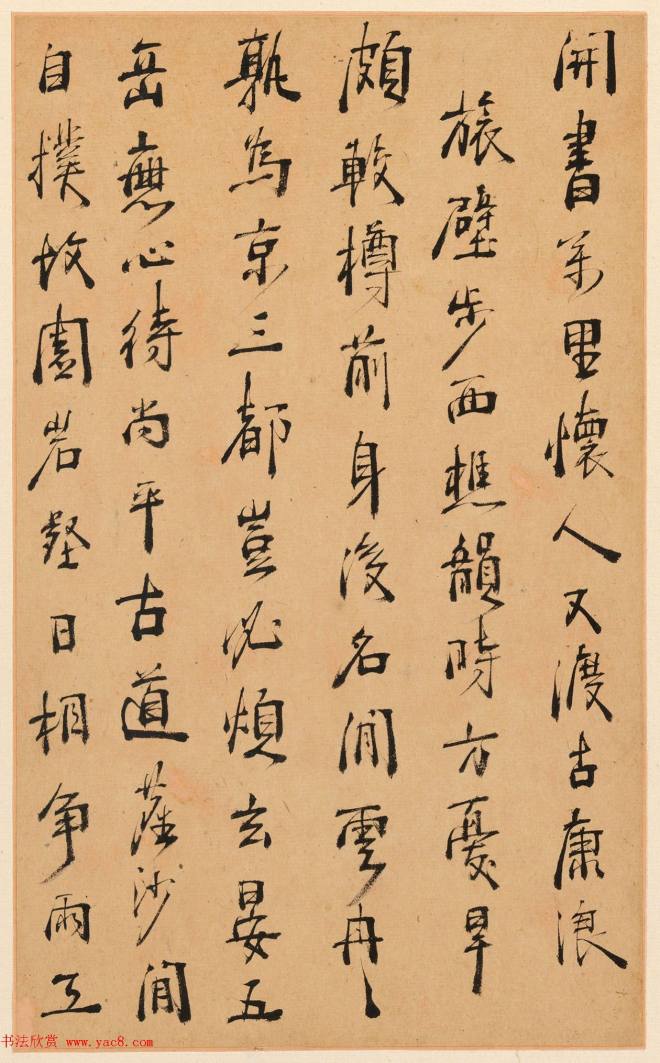 開書萬里懷人又渡古康浪
旅壁步西樵韻時方憂旱
頗較樽前身後名閒雲冉〻
孰為京三都豈必煩玄晏五
岳無心待尚平古道沙閒
自撲故園岩壑日相爭雨工
书法欣赏 www.yac8.com